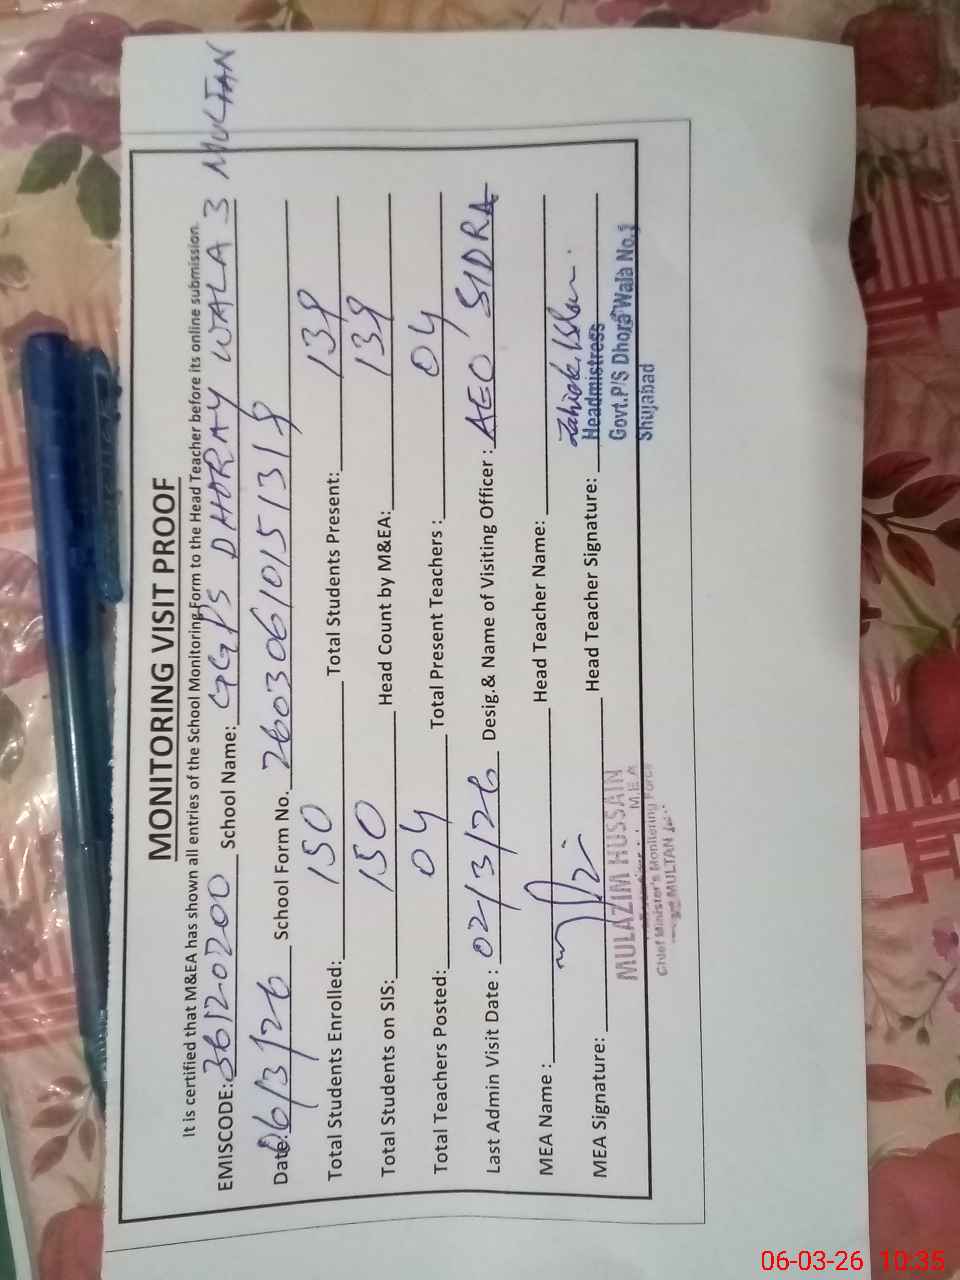 MONITORING VISIT PROOF
It is certified that M&EA has shown all entries of the School Monitoring Form to the Head Teacher before its online submission.
EMISCODE: 36120200 School Name: GGPS DHORAY WALA 3 MULTAN
Date: 06/3/26 School Form No. 26030610151318
Total Students Enrolled: 150 Total Students Present: 139
Total Students on SIS: 150 Head Count by M&EA: 139
Total Teachers Posted: 04 Total Present Teachers : 04
Last Admin Visit Date : 02/3/26 Desig.& Name of Visiting Officer : AEO SIDRA
MEA Name : Head Teacher Name:
MEA Signature: Head Teacher Signature:
Headmistress
Govt.P/S Dhora Wala No.3
Shujabad
MULAZIM HUSSAIN
M.E.A
Chief Minister's Monitoring Force
MULTAN
06-03-26 10:35